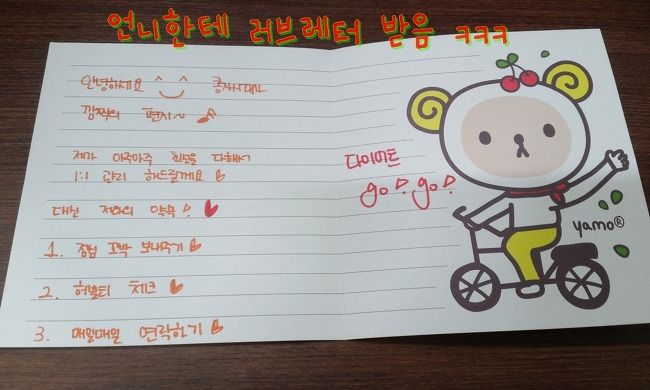 언니한테 러브레터 받음 ㅋㅋㅋ
안녕하세요 ^‿^
깜짝의 편지~ ♪
제가 아주아주 최선을 다해서
1:1 관리 해드릴게요 ♡
대신 저와의 약속! ♥
1. 점심 꼬박 보내주기 ♡
2. 허벌티 체크 ♡
3. 매일매일 연락하기 ♡
다이어트
go! go!
yamo®